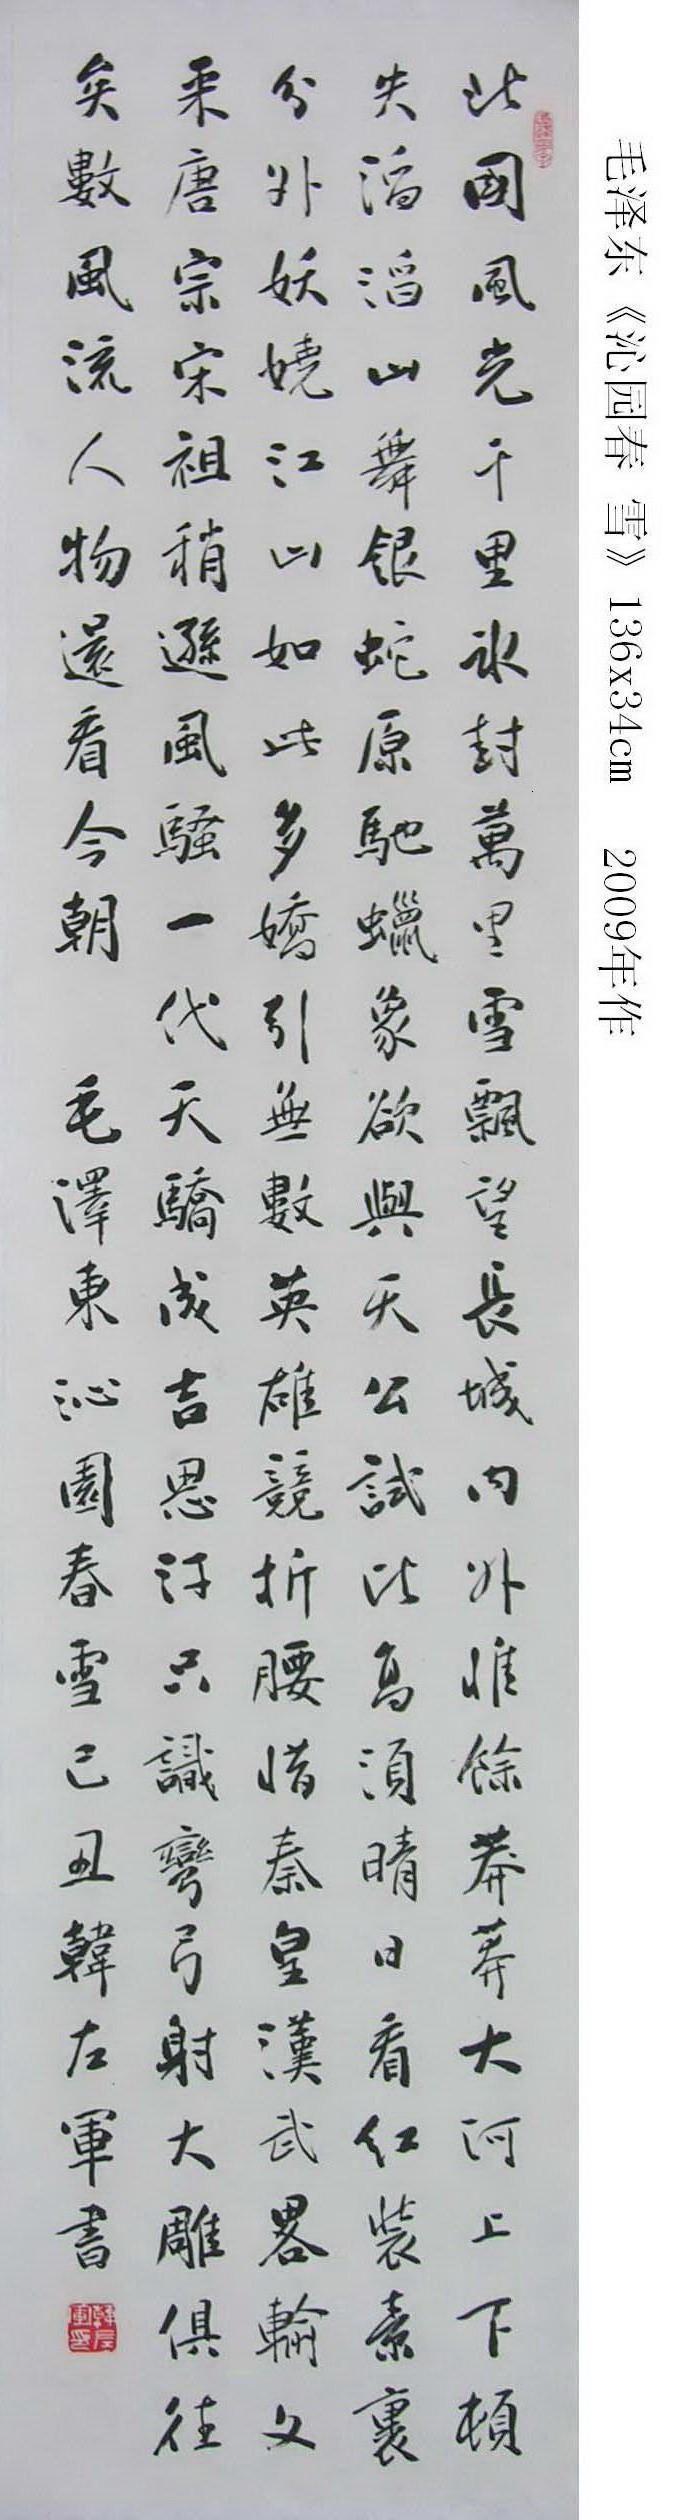 毛泽东《沁园春 雪》136x34cm 2009年作
北國風光千里冰封萬里雪飄望長城內外惟餘莽莽大河上下頓
失滔滔山舞銀蛇原馳蠟象欲與天公試比高須晴日看紅裝素裹
分外妖嬈江山如此多嬌引無數英雄競折腰惜秦皇漢武畧輸文
采唐宗宋祖稍遜風騷一代天驕成吉思汗只識彎弓射大雕俱往
矣數風流人物還看今朝 毛澤東沁園春雪己丑韓左軍書